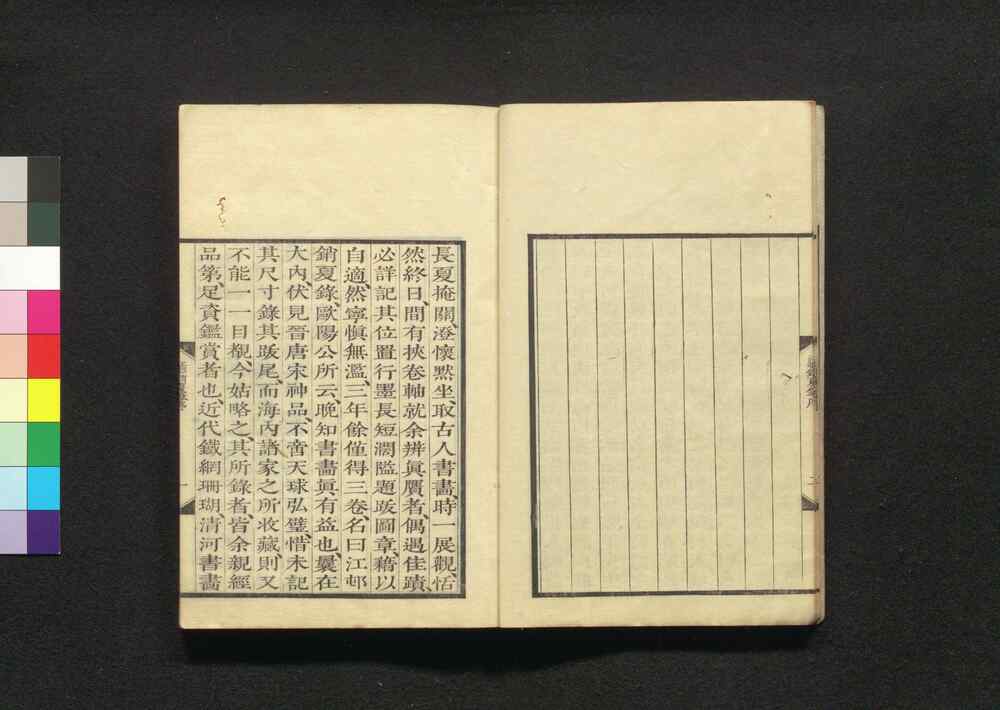 長夏掩關、澄懷默坐、取古人書畫、時一展觀、恬
然終日、間有挾卷軸就余辨眞贋者、偶遇佳蹟、
必詳記其位置行墨長短濶隘題跋圖章、藉以
自適、然寧愼無濫、三年餘僅得三卷、名曰江邨
銷夏錄、歐陽公所云、晚知書畵眞有益也、曩在
大內、伏見晉唐宋神品、不啻天球弘璧、惜未記
其尺寸錄其跋尾、而海內諸家之所收藏、則又
不能一一目覩、今姑略之、其所錄者、皆余親經
品第、足資鑑賞者也、近代鐵網珊瑚清河書畵